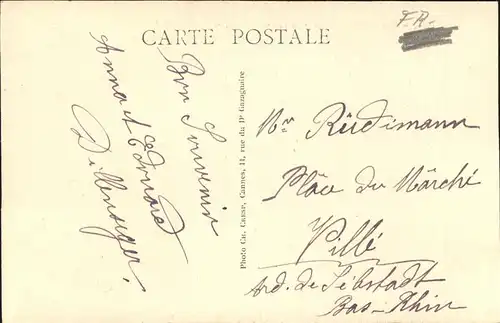 FR.
CARTE POSTALE
Bon Souvenir
Anna et Edouard
Dillenseger.
Photo Ch. Caresp, Cannes, 11, rue du Dr Gazagnaire
Mr Rüdimann
Place du Marché
Villé
Ard. de Sélstadt
Bas-Rhin